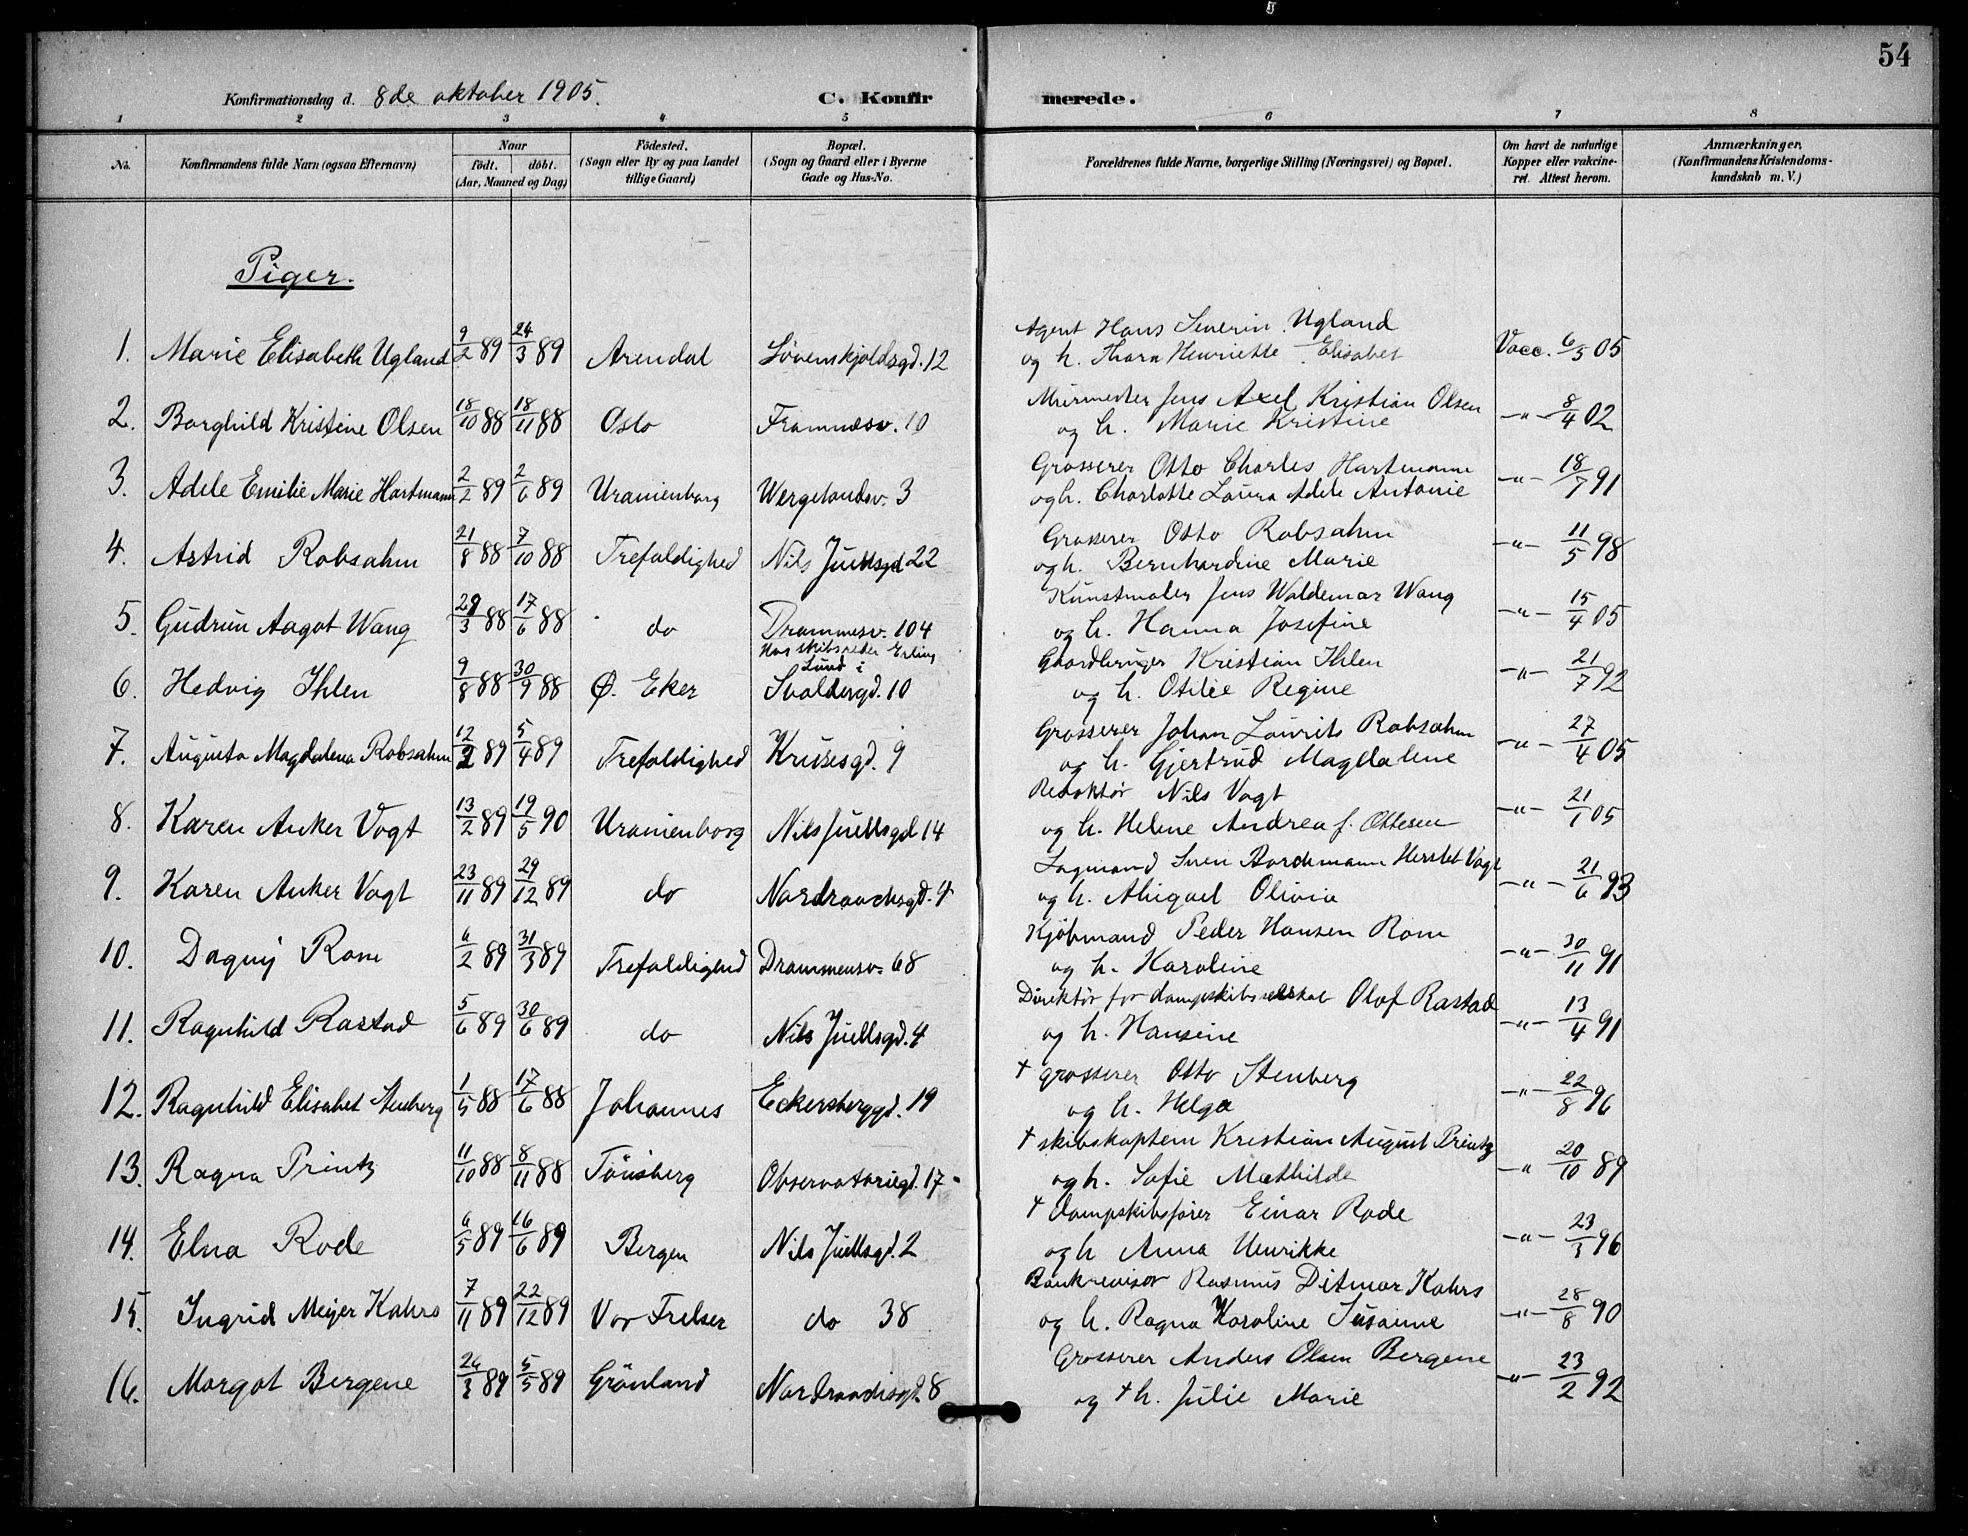 54
Konfirmationsdag d. 8de oktober 1905.
C. Konfir merede.
1 2 3 4 5 6 7 8
No. Konfirmandens fulde Navn (ogsaa Efternavn) Naar födt. döbt. (Aar, Maaned og Dag) Födested. (Sogn eller By og paa Landet tillige Gaard) Bopæl. (Sogn og Gaard eller i Byerne Gade og Hus-No. Forældrenes fulde Navne, borgerlige Stilling (Næringsvei) og Bopæl. Om havt de naturlige Kopper eller vakcineret. Attest herom. Anmærkninger. (Konfirmandens Kristendomskundskab m. V.)
Piger.
Agent Hans Severin Ugland
1. Marie Elisabeth Ugland 9/2 89 24/3 89 Arendal Løvenskjoldsgd. 12 og h. Thora Henriette Elisabet Vacc. 6/5 05
Murmester Jens Axel Kristian Olsen
2. Borghild Kristine Olsen 18/10 88 18/11 88 Oslo Framnæsv. 10 og h. Marie Kristine -"- 8/4 02
Grosserer Otto Charles Hartmann
3. Adele Emilie Marie Hartmann 2/2 89 2/6 89 Uranienborg Wergelandsv. 3 og h. Charlotte Laura Adele Antonie -"- 18/7 91
Grosserer Otto Robsahm
4. Astrid Robsahm 21/8 88 7/10 88 Trefoldighed Nils Juelsgd 22 og h. Bernhardine Marie -"- 11/5 98
Kunstmaler Jens Waldemar Wang
5. Gudrun Aagot Wang 29/3 88 17/6 88 do Drammesv. 104 og h. Hanna Josefine -"- 15/4 05
Hos skibsreder Erling Lund i
Gaardbruger Kristian Ihlen
6. Hedvig Ihlen 9/8 88 30/9 88 Ø. Eker Svoldergd. 10 og h. Otilie Regine -"- 21/7 92
Grosserer Johan Laurits Robsahm
7. Augusta Magdalena Robsahm 12/2 89 5/4 89 Trefoldighed Krusesgd. 9 og h. Gjertrud Magdalene -"- 27/4 05
Redaktør Nils Vogt
8. Karen Anker Vogt 13/2 89 19/5 90 Uranienborg Nils Juellsgd 14 og h. Helene Andrea f. Ottesen -"- 21/1 05
Lagmand Sven Herslet Vogt
9. Karen Anker Vogt 23/11 89 29/12 89 do Nordraachsgd. 4 og h. Abigael Olivia -"- 21/6 93
Kjøbmand Peder Hansen Rom
10. Dagny Rom 6/2 89 31/3 89 Trefoldighed Drammensv. 68 og h. Karoline -"- 30/11 91
Direktør for dampskibsselskab Olof Rastad
11. Ragnhild Rastad 5/6 89 30/6 89 do Nils Juellsgd. 4 og h. Hansine -"- 13/4 91
† grosserer Otto Stenberg
12. Ragnhild Elisabet Stenberg 1/5 88 17/6 88 Johannes Eckersberggd. 19 og h. Helga -"- 22/8 96
† skibskaptein Kristian August Printz
13. Ragna Printz 11/10 88 8/11 88 Tönsberg Observatoriegd. 17 og h. Sofie Mathilde -" 20/10 89
† dampskibsfører Einar Rode
14. Elna Rode 6/5 89 16/6 89 Bergen Nils Juellsgd. 2 og h Anna Henrikke -"- 23/3 96
Bankrevisor Rasmus Ditmar Kahrs
15. Ingrid Meyer Kahrs 7/11 89 22/12 89 Vor Frelser do 38 og h. Ragna Karoline Susanne -"- 28/8 90
Grosserer Anders Olsen Bergene
16. Margot Bergene 26/3 89 5/5 89 Grönland Nordraachsgd. 8 og † h. Julie Marie -"- 23/2 92